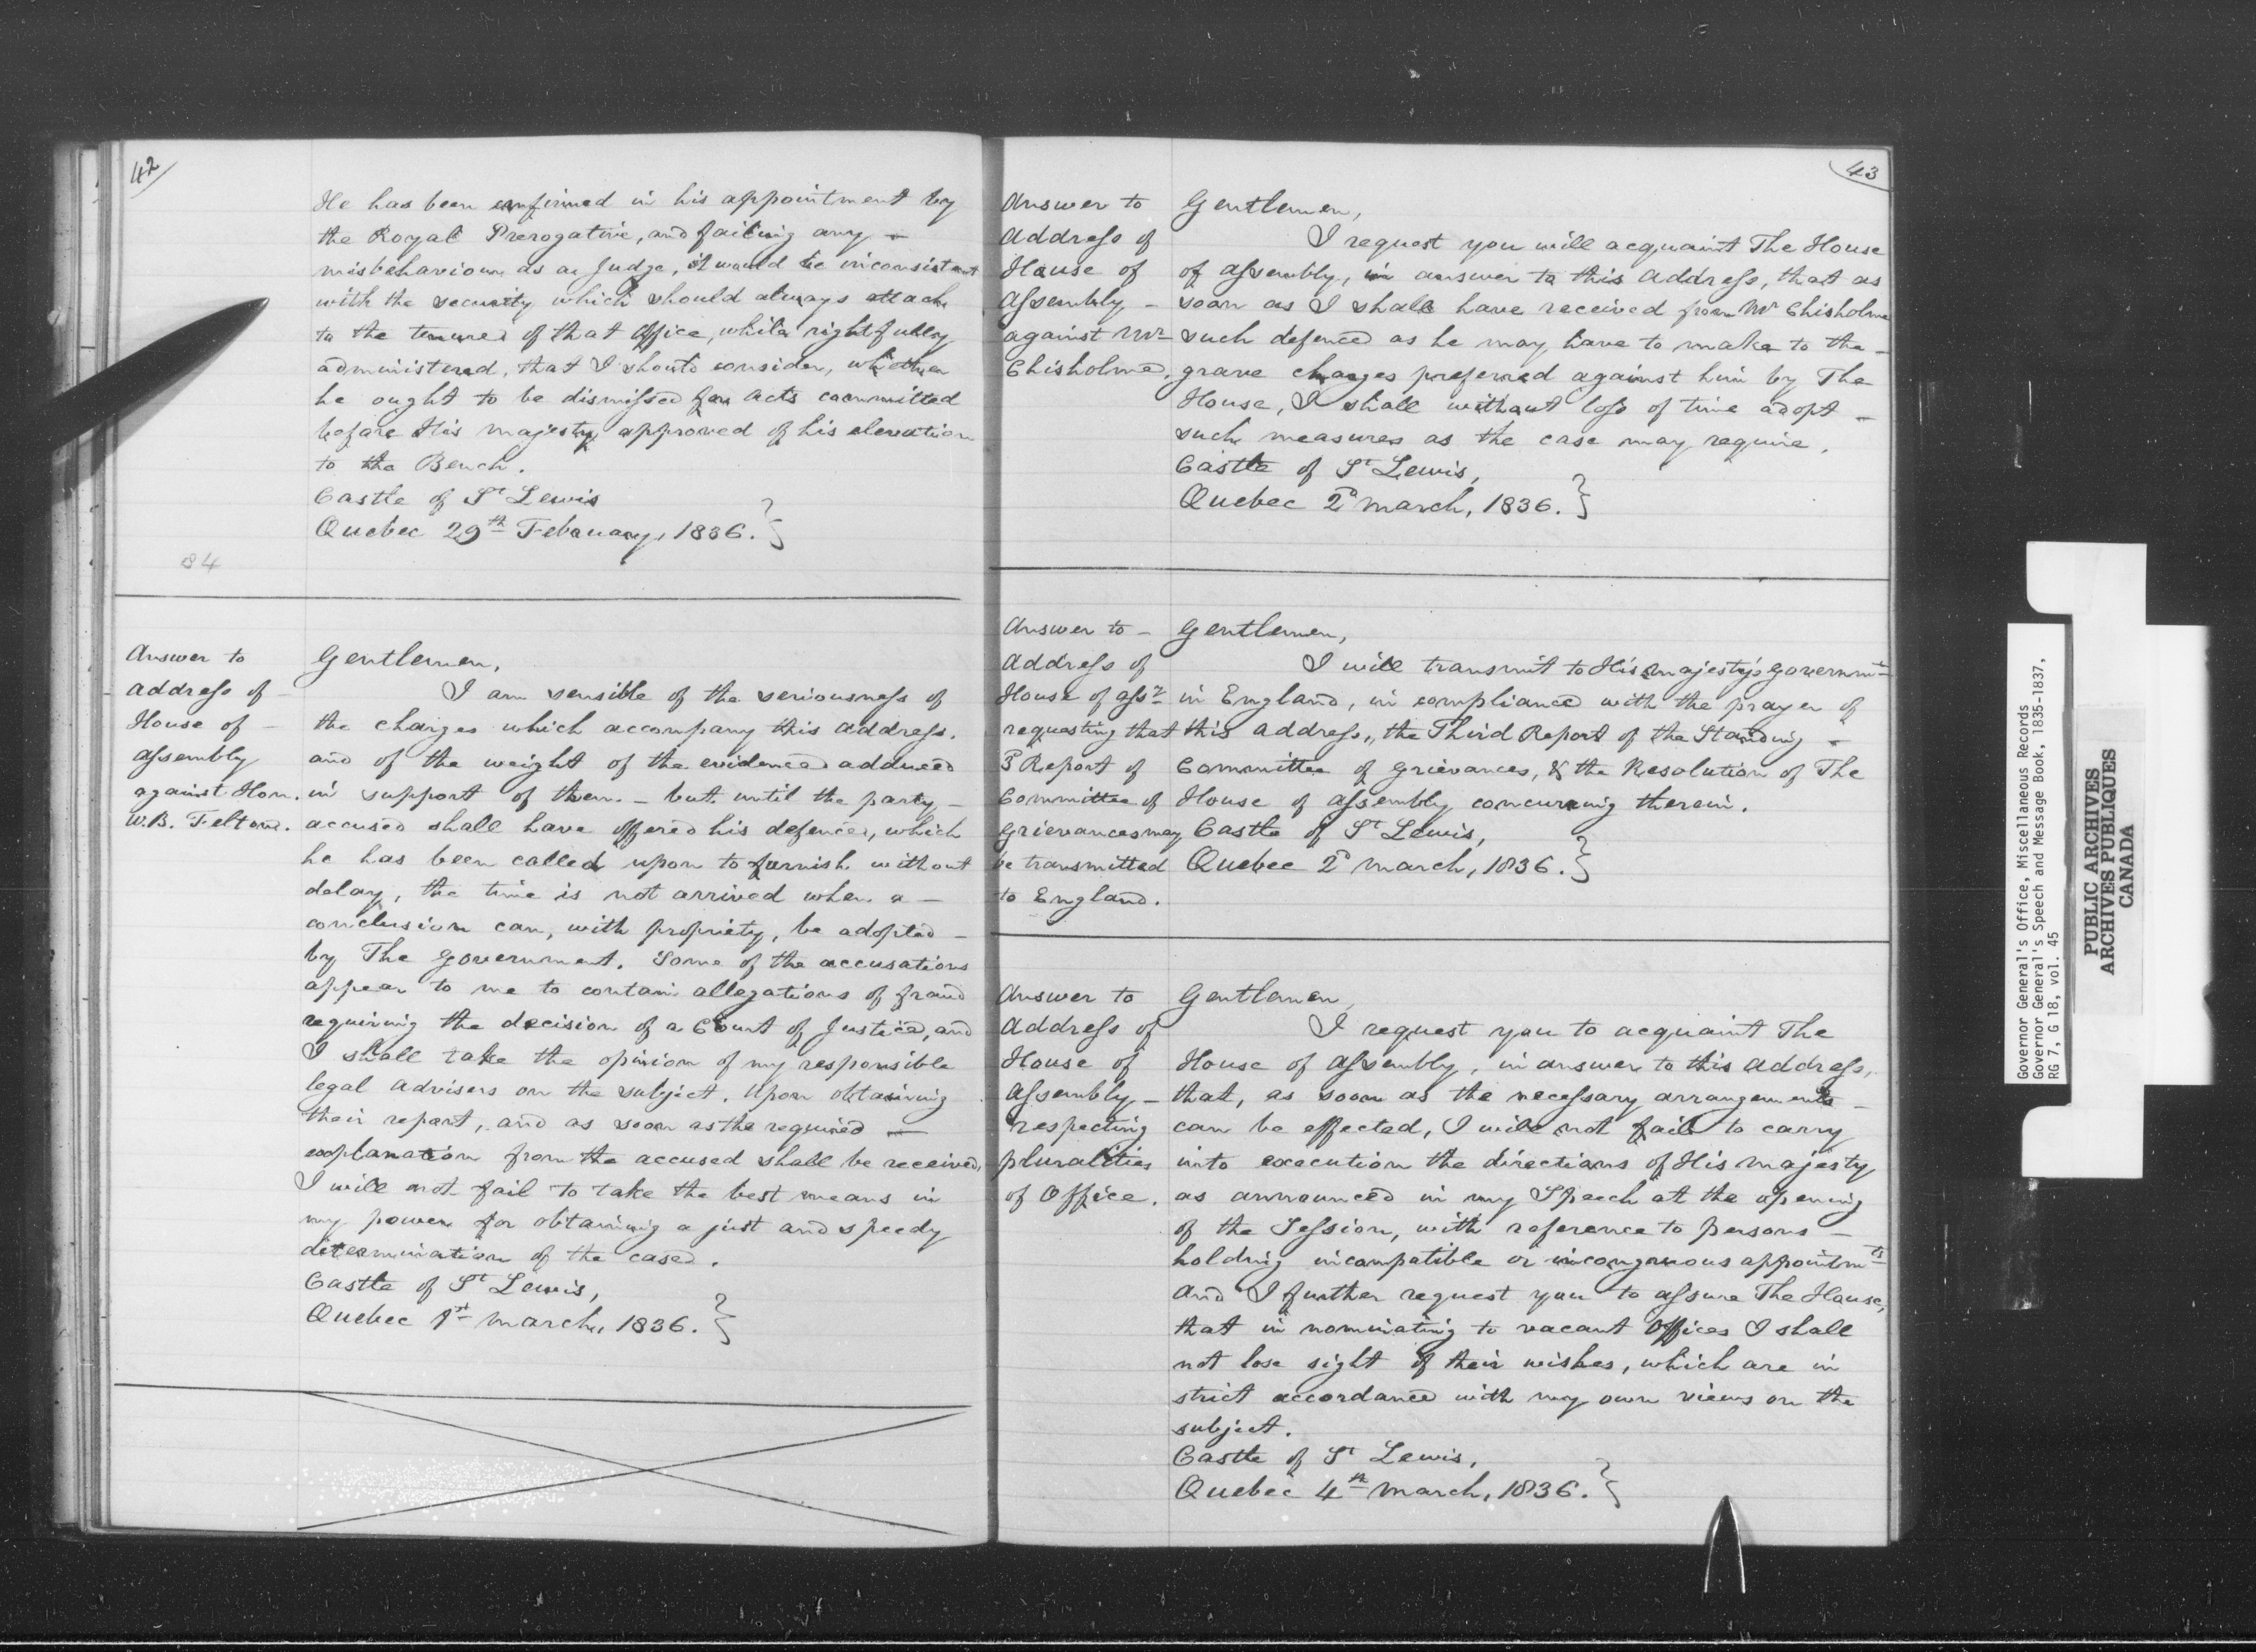 42
He has been confirmed in his appointment by
the Royal Prerogative, and failing any –
misbehaviour as a Judge, it would be inconsistent
with the security which should always attach
to the tenure of that Office, while rightfully
administered, that I should consider, whether
he ought to be dismissed for acts committed
before His Majesty approved of his elevation
to the Bench.
Castle of St Lewis
Quebec 29th February, 1836. }
84
Answer to
Address of –
House of –
Assembly
against Hon.
W.B. Felton.
Gentlemen,
I am sensible of the seriousness of
the charges which accompany this address.
and of the weight of the evidence adduced
in support of them. – but until the party –
accused shall have offered his defence, which
he has been called upon to furnish without
delay, the time is not arrived when a –
conclusion can, with propriety, be adopted –
by The Government. Some of the accusations
appear to me to contain allegations of fraud
requiring the decision of a Court of Justice, and
I shall take the opinion of my responsible
legal advisers on the subject. Upon obtaining
their report, and as soon as the required –
explanation from the accused shall be received,
I will not fail to take the best means in
my power for obtaining a just and speedy
determination of the case.
Castle of St Lewis,
Quebec 1st March, 1836. }
43
Answer to
Address of
House of
Assembly –
against Mr
Chisholme.
Gentlemen,
I request you will acquaint The House
of Assembly, in answer to this Address, that as
soon as I shall have received from Mr Chisholme
such defence as he may have to make to the –
grave charges preferred against him by The
House, I shall without loss of time adopt –
such measures as the case may require.
Castle of St Lewis,
Quebec 2d March, 1836. }
Answer to –
Address of
House of Assy
requesting that
3d Report of
Committee of
Grievances may
be transmitted
to England.
Gentlemen,
I will transmit to His Majesty's Governmt
in England, in compliance with the prayer of
this address, the Third Report of the Standing –
Committee of Grievances, & the Resolution of The
House of Assembly concurring therein.
Castle of St Lewis,
Quebec 2d March, 1836. }
Answer to
Address of
House of
Assembly –
respecting
pluralities
of Office.
Gentlemen,
I request you to acquaint The
House of Assembly, in answer to this Address,
that, as soon as the necessary arrangements –
can be effected, I will not fail to carry
into execution the directions of His Majesty
as announced in my Speech at the opening
of the Session, with reference to persons –
holding incompatible or incongruous appointmts
And I further request you to assure The House,
that in nominating to vacant Offices I shall
not lose sight of their wishes, which are in
strict accordance with my own views on the
subject.
Castle of St Lewis,
Quebec 4th March, 1836. }
Governor General's Office, Miscellaneous Records
Governor General's Speech and Message Book, 1835-1837,
RG 7, G 18, vol. 45
PUBLIC ARCHIVES
ARCHIVES PUBLIQUES
CANADA